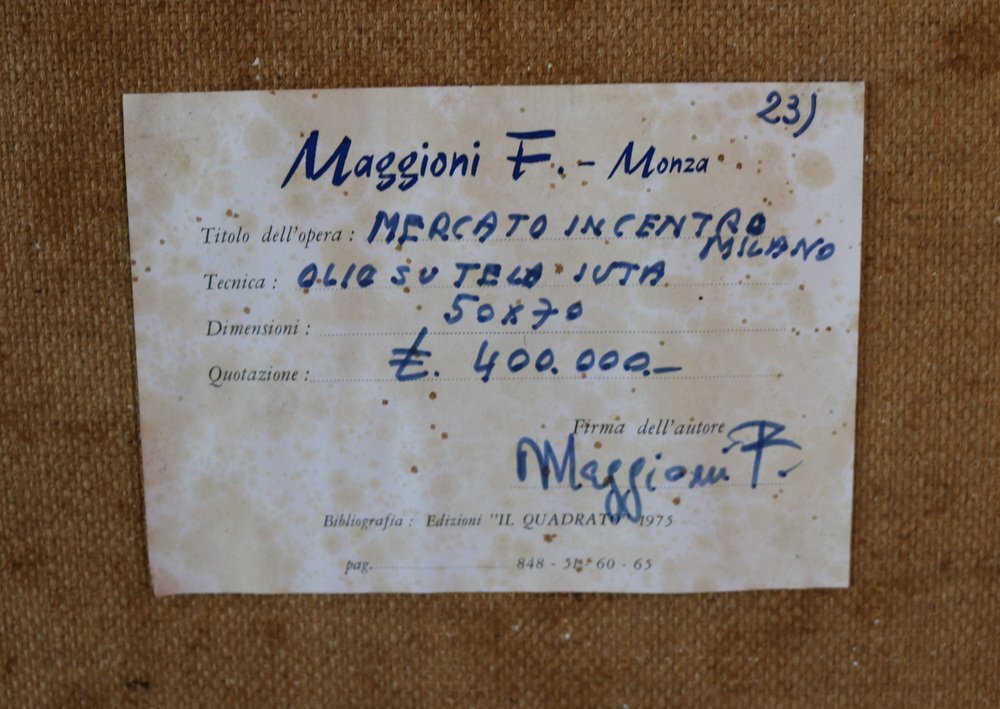 23)
Maggioni F. - Monza
Titolo dell'opera : MERCATO IN CENTRO
MILANO
Tecnica : OLIO SU TELA IUTA
Dimensioni : 50x70
Quotazione : £. 400.000.-
Firma dell'autore
Maggioni F.
Bibliografia : Edizioni "IL QUADRATO" 1975
pag. 848 - 51 - 60 - 65